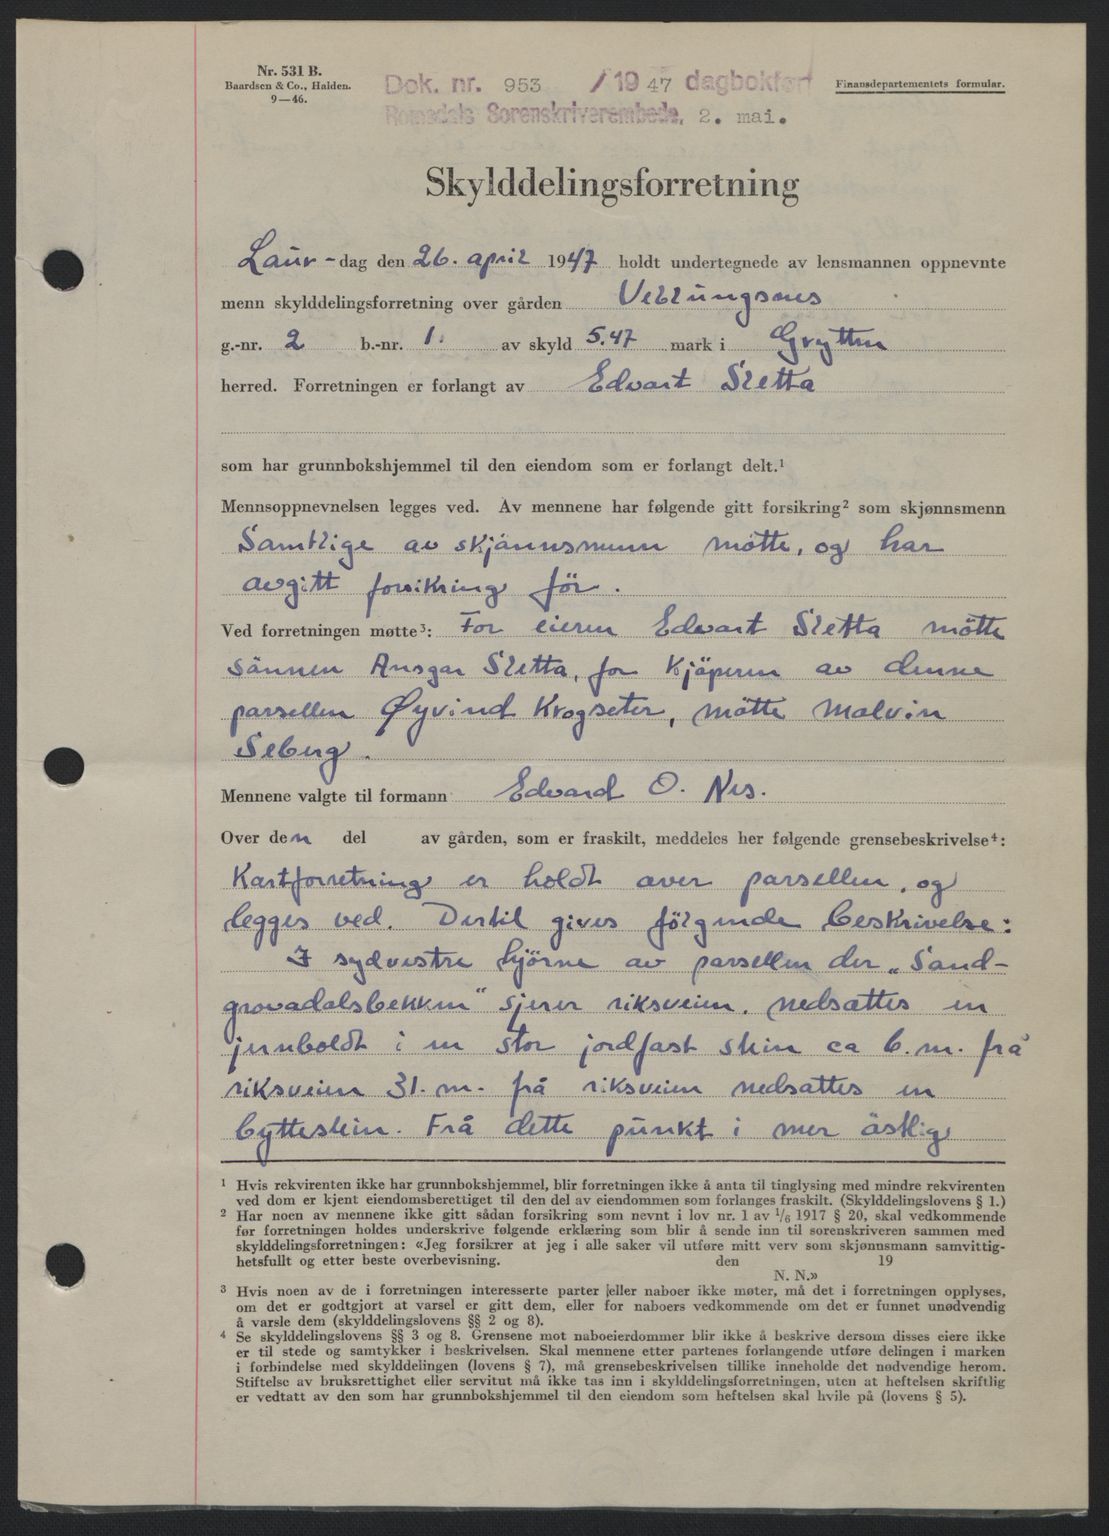 Nr. 531 B.
Baardsen & Co., Halden.
9—46.
Dok. nr. 953 / 1947 dagbokført
Romsdals Sorenskriverembede, 2. mai.
Finansdepartementets formular.
Skylddelingsforretning
Laur-dag den 26. april 1947 holdt undertegnede av lensmannen oppnevnte
menn skylddelingsforretning over gården Veblungsnes
g.-nr. 2 b.-nr. 1. av skyld 5.47 mark i Grytten
herred. Forretningen er forlangt av Edvart Sletta
som har grunnbokshjemmel til den eiendom som er forlangt delt.¹
Mennsoppnevnelsen legges ved. Av mennene har følgende gitt forsikring² som skjønnsmenn
Samtlige av skjönnsmenn mötte, og har
avgitt forsikring för.
Ved forretningen møtte³: For eieren Edvart Sletta mötte
sönnen Ansgar Sletta, for kjöperen av denne
parsellen Øyvind Krogseter, mötte Malvin
Seberg.
Mennene valgte til formann Edvard O. Nes.
Over den del av gården, som er fraskilt, meddeles her følgende grensebeskrivelse⁴:
Kartforretning er holdt over parsellen, og
legges ved. Dertil gives fölgende beskrivelse:
I sydvestre hjörne av parsellen der „Sand-
grovadalsbekken" sjerer riksveien. nedsattes en
jernboldt i en stor jordfast stein ca 6. m. frå
riksveien 31. m. frå riksveien nedsattes en
bytteslein. Frå dette punkt i mer östlig
¹ Hvis rekvirenten ikke har grunnbokshjemmel, blir forretningen ikke å anta til tinglysing med mindre rekvirenten
ved dom er kjent eiendomsberettiget til den del av eiendommen som forlanges fraskilt. (Skylddelingslovens § 1.)
² Har noen av mennene ikke gitt sådan forsikring som nevnt i lov nr. 1 av ¹/₆ 1917 § 20, skal vedkommende
før forretningen holdes underskrive følgende erklæring som blir å sende inn til sorenskriveren sammen med
skylddelingsforretningen: «Jeg forsikrer at jeg i alle saker vil utføre mitt verv som skjønnsmann samvittig-
hetsfullt og etter beste overbevisning. den 19
N. N.»
³ Hvis noen av de i forretningen interesserte parter eller naboer ikke møter, må det i forretningen opplyses,
om det er godtgjort at varsel er gitt dem, eller for naboers vedkommende om det er funnet unødvendig
å varsle dem (skylddelingslovens §§ 2 og 8).
⁴ Se skylddelingslovens §§ 3 og 8. Grensene mot naboeierdommer blir ikke å beskrive dersom disses eiere ikke
er til stede og samtykker i beskrivelsen. Skal mennene etter partenes forlangende utføre delingen i marken
i forbindelse med skylddelingen (lovens § 7), må grensebeskrivelsen tillike inneholde det nødvendige herom.
Stiftelse av bruksrettighet eller servitut må ikke tas inn i skylddelingsforretningen, uten at heftelsen skriftlig
er vedtatt av den som har grunnbokshjemmel til den eiendom som heftelsen skal hvile på (lovens § 5).